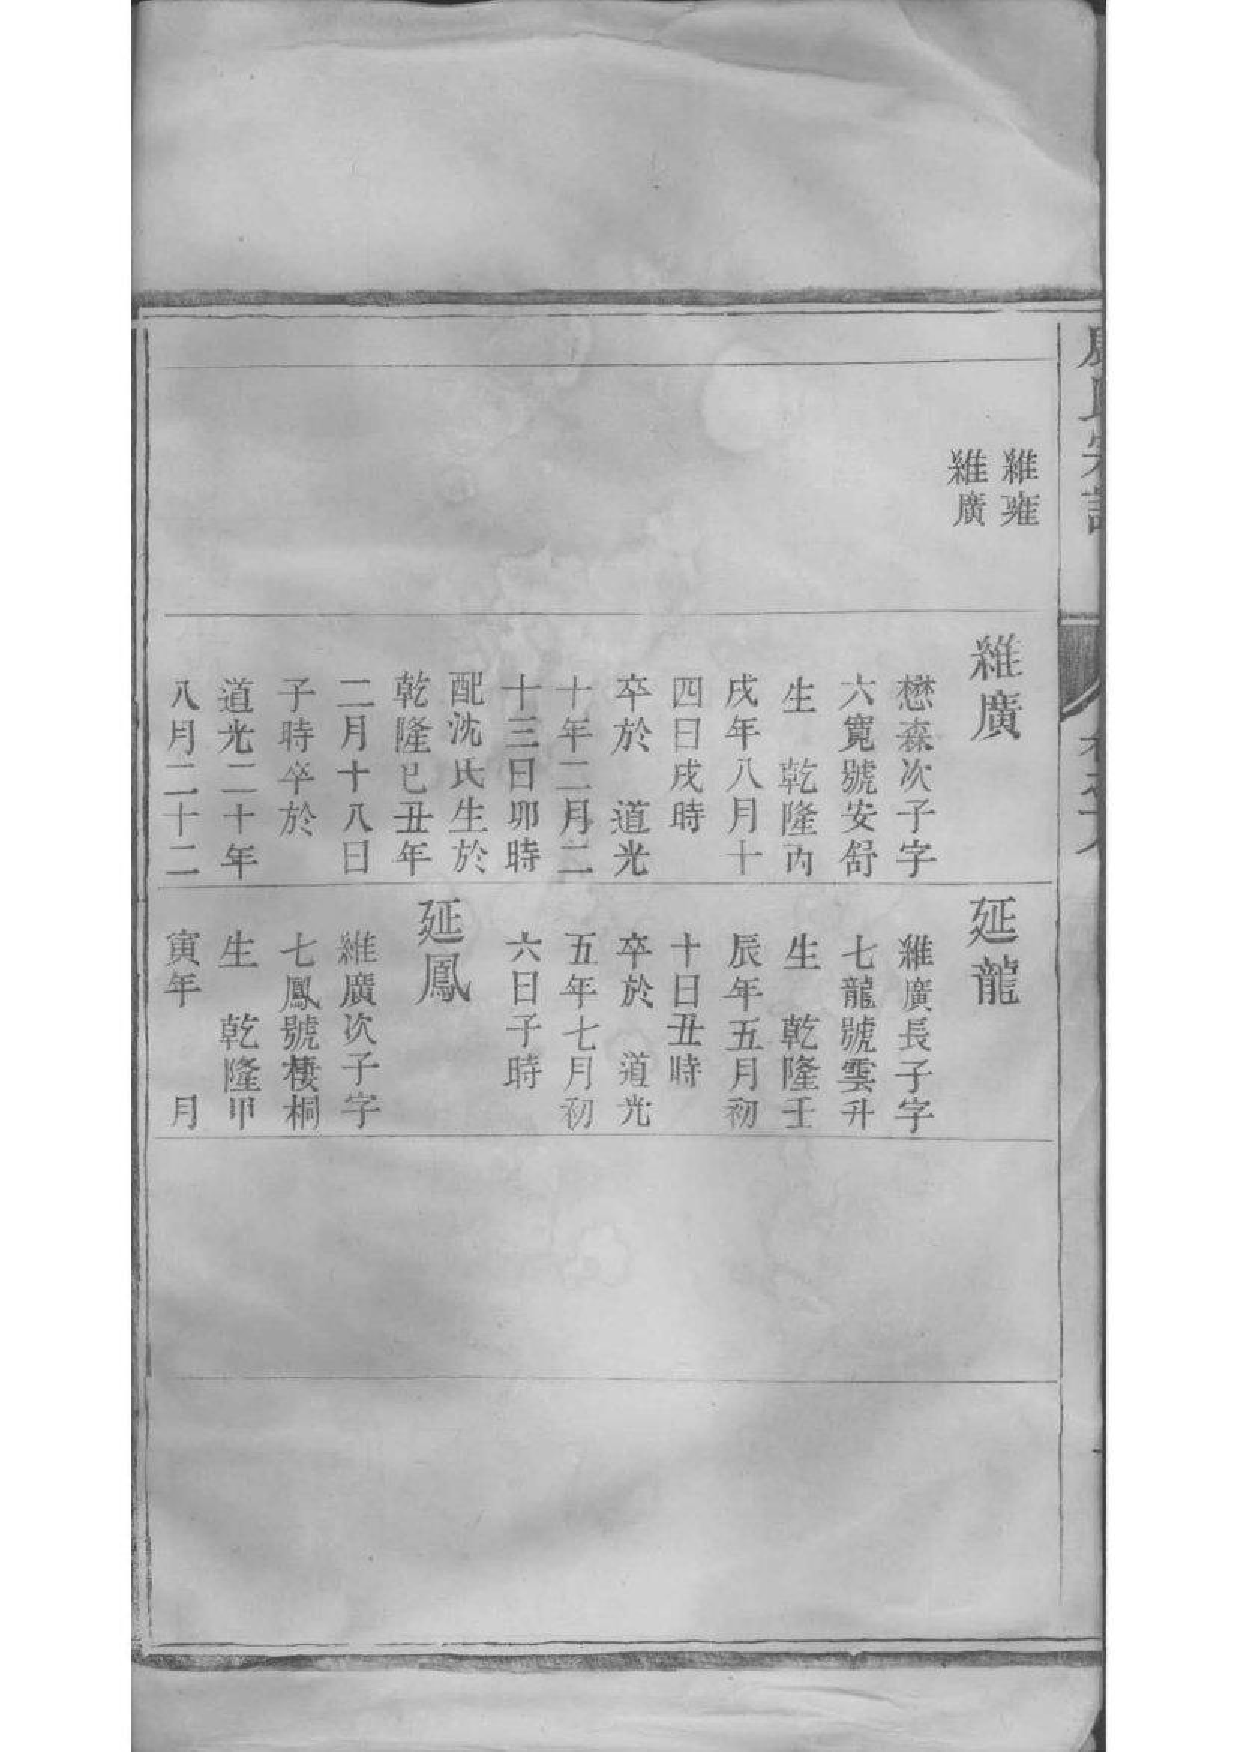 氏宗譜
維雍
維廣
維廣
懋森次子字
六寬號安舒
生　乾隆丙
戌年八月十
四日戌時
卒於　道光
十年二月二
十三日卯時
配沈氏生於
乾隆己丑年
二月十八日
子時卒於
道光二十年
八月二十二
延龍
維廣長子字
七龍號雲升
生　乾隆壬
辰年五月初
十日丑時
卒於　道光
五年七月初
六日子時
延鳳
維廣次子字
七鳳號棲桐
生　乾隆甲
寅年　　月